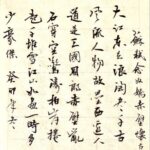 蘇軾念奴嬌赤壁懷古
大江東去浪淘盡千古
風流人物故壘西邊人
道是三國周郎赤壁亂
石穿空驚濤拍岸捲
起千堆雪江山如畫一時多
少豪傑 癸卯年冬